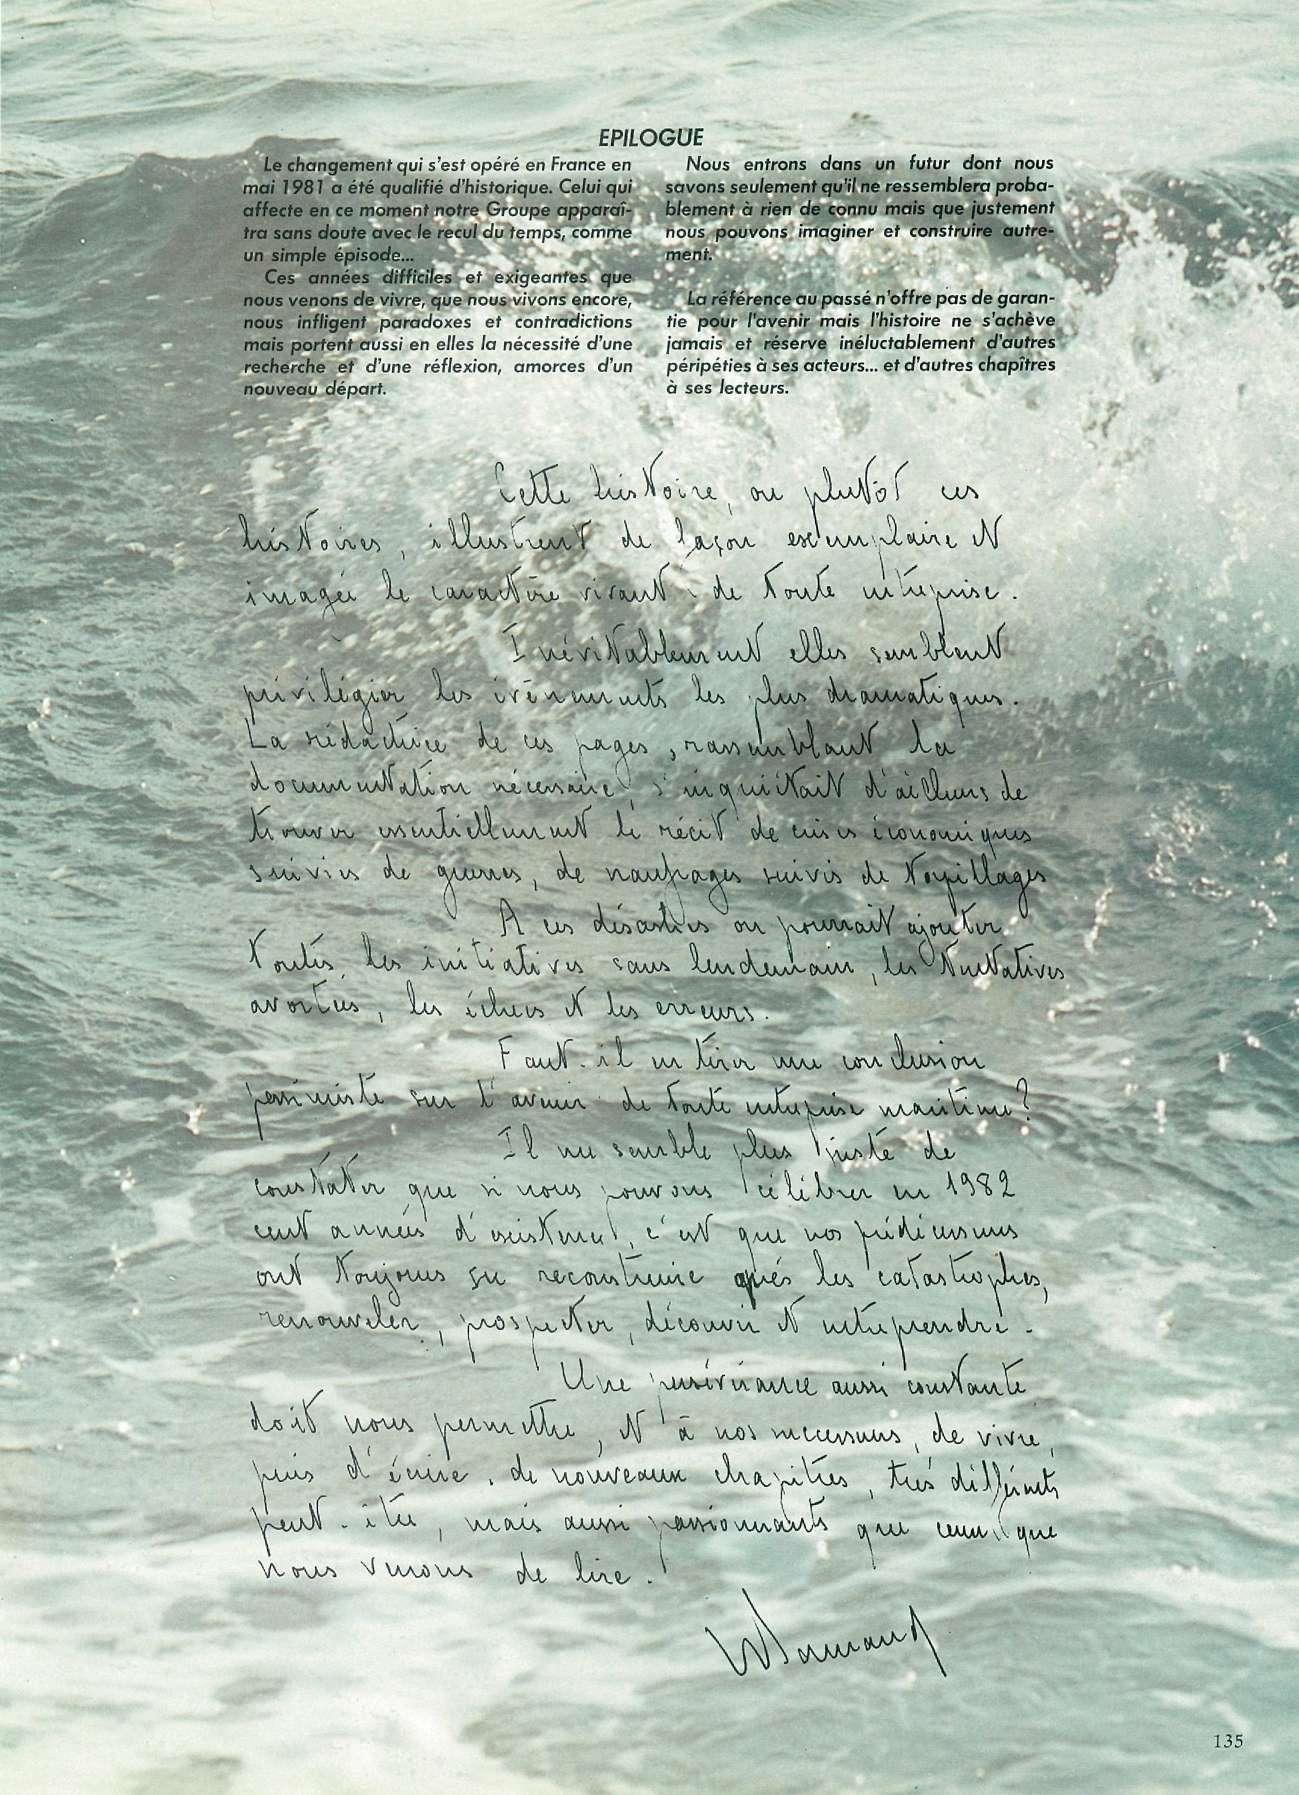 EPILOGUE
Le changement qui s'est opéré en France en
mai 1981 a été qualifié d'historique. Celui qui
affecte en ce moment notre Groupe apparaî-
tra sans doute avec le recul du temps, comme
un simple épisode...
Ces années difficiles et exigeantes que
nous venons de vivre, que nous vivons encore,
nous infligent paradoxes et contradictions
mais portent aussi en elles la nécessité d'une
recherche et d'une réflexion, amorces d'un
nouveau départ.
Nous entrons dans un futur dont nous
savons seulement qu'il ne ressemblera proba-
blement à rien de connu mais que justement
nous pouvons imaginer et construire autre-
ment.
La référence au passé n'offre pas de garan-
tie pour l'avenir mais l'histoire ne s'achève
jamais et réserve inéluctablement d'autres
péripéties à ses acteurs... et d'autres chapîtres
à ses lecteurs.
Cette histoire, ou plutôt ces
histoires, illustrent de façon exemplaire et
imagée le caractère vivant de toute entreprise.
Inévitablement elles semblent
privilégier les évènements les plus dramatiques.
La rédactrice de ces pages, rassemblant la
documentation nécessaire, s'inquiétait d'ailleurs de
trouver essentiellement le récit de crises économiques
suivies de guerres, de naufrages suivis de torpillages
A ces désastres on pourrait ajouter
toutes les initiatives sans lendemain, les tentatives
avortées, les échecs et les erreurs.
Faut-il en tirer une conclusion
pessimiste sur l'avenir de toute entreprise maritime?
Il me semble plus juste de
constater que si nous pouvons célébrer en 1982
cent années d'existence, c'est que nos prédécesseurs
ont toujours su reconstruire après les catastrophes,
renouveler, prospecter, découvrir et entreprendre.
Une persévérance aussi constante
doit nous permettre, et à nos successeurs, de vivre,
puis d'écrire, de nouveaux chapitres, très différents
peut-être, mais aussi passionnants que ceux que
nous venons de lire.
135